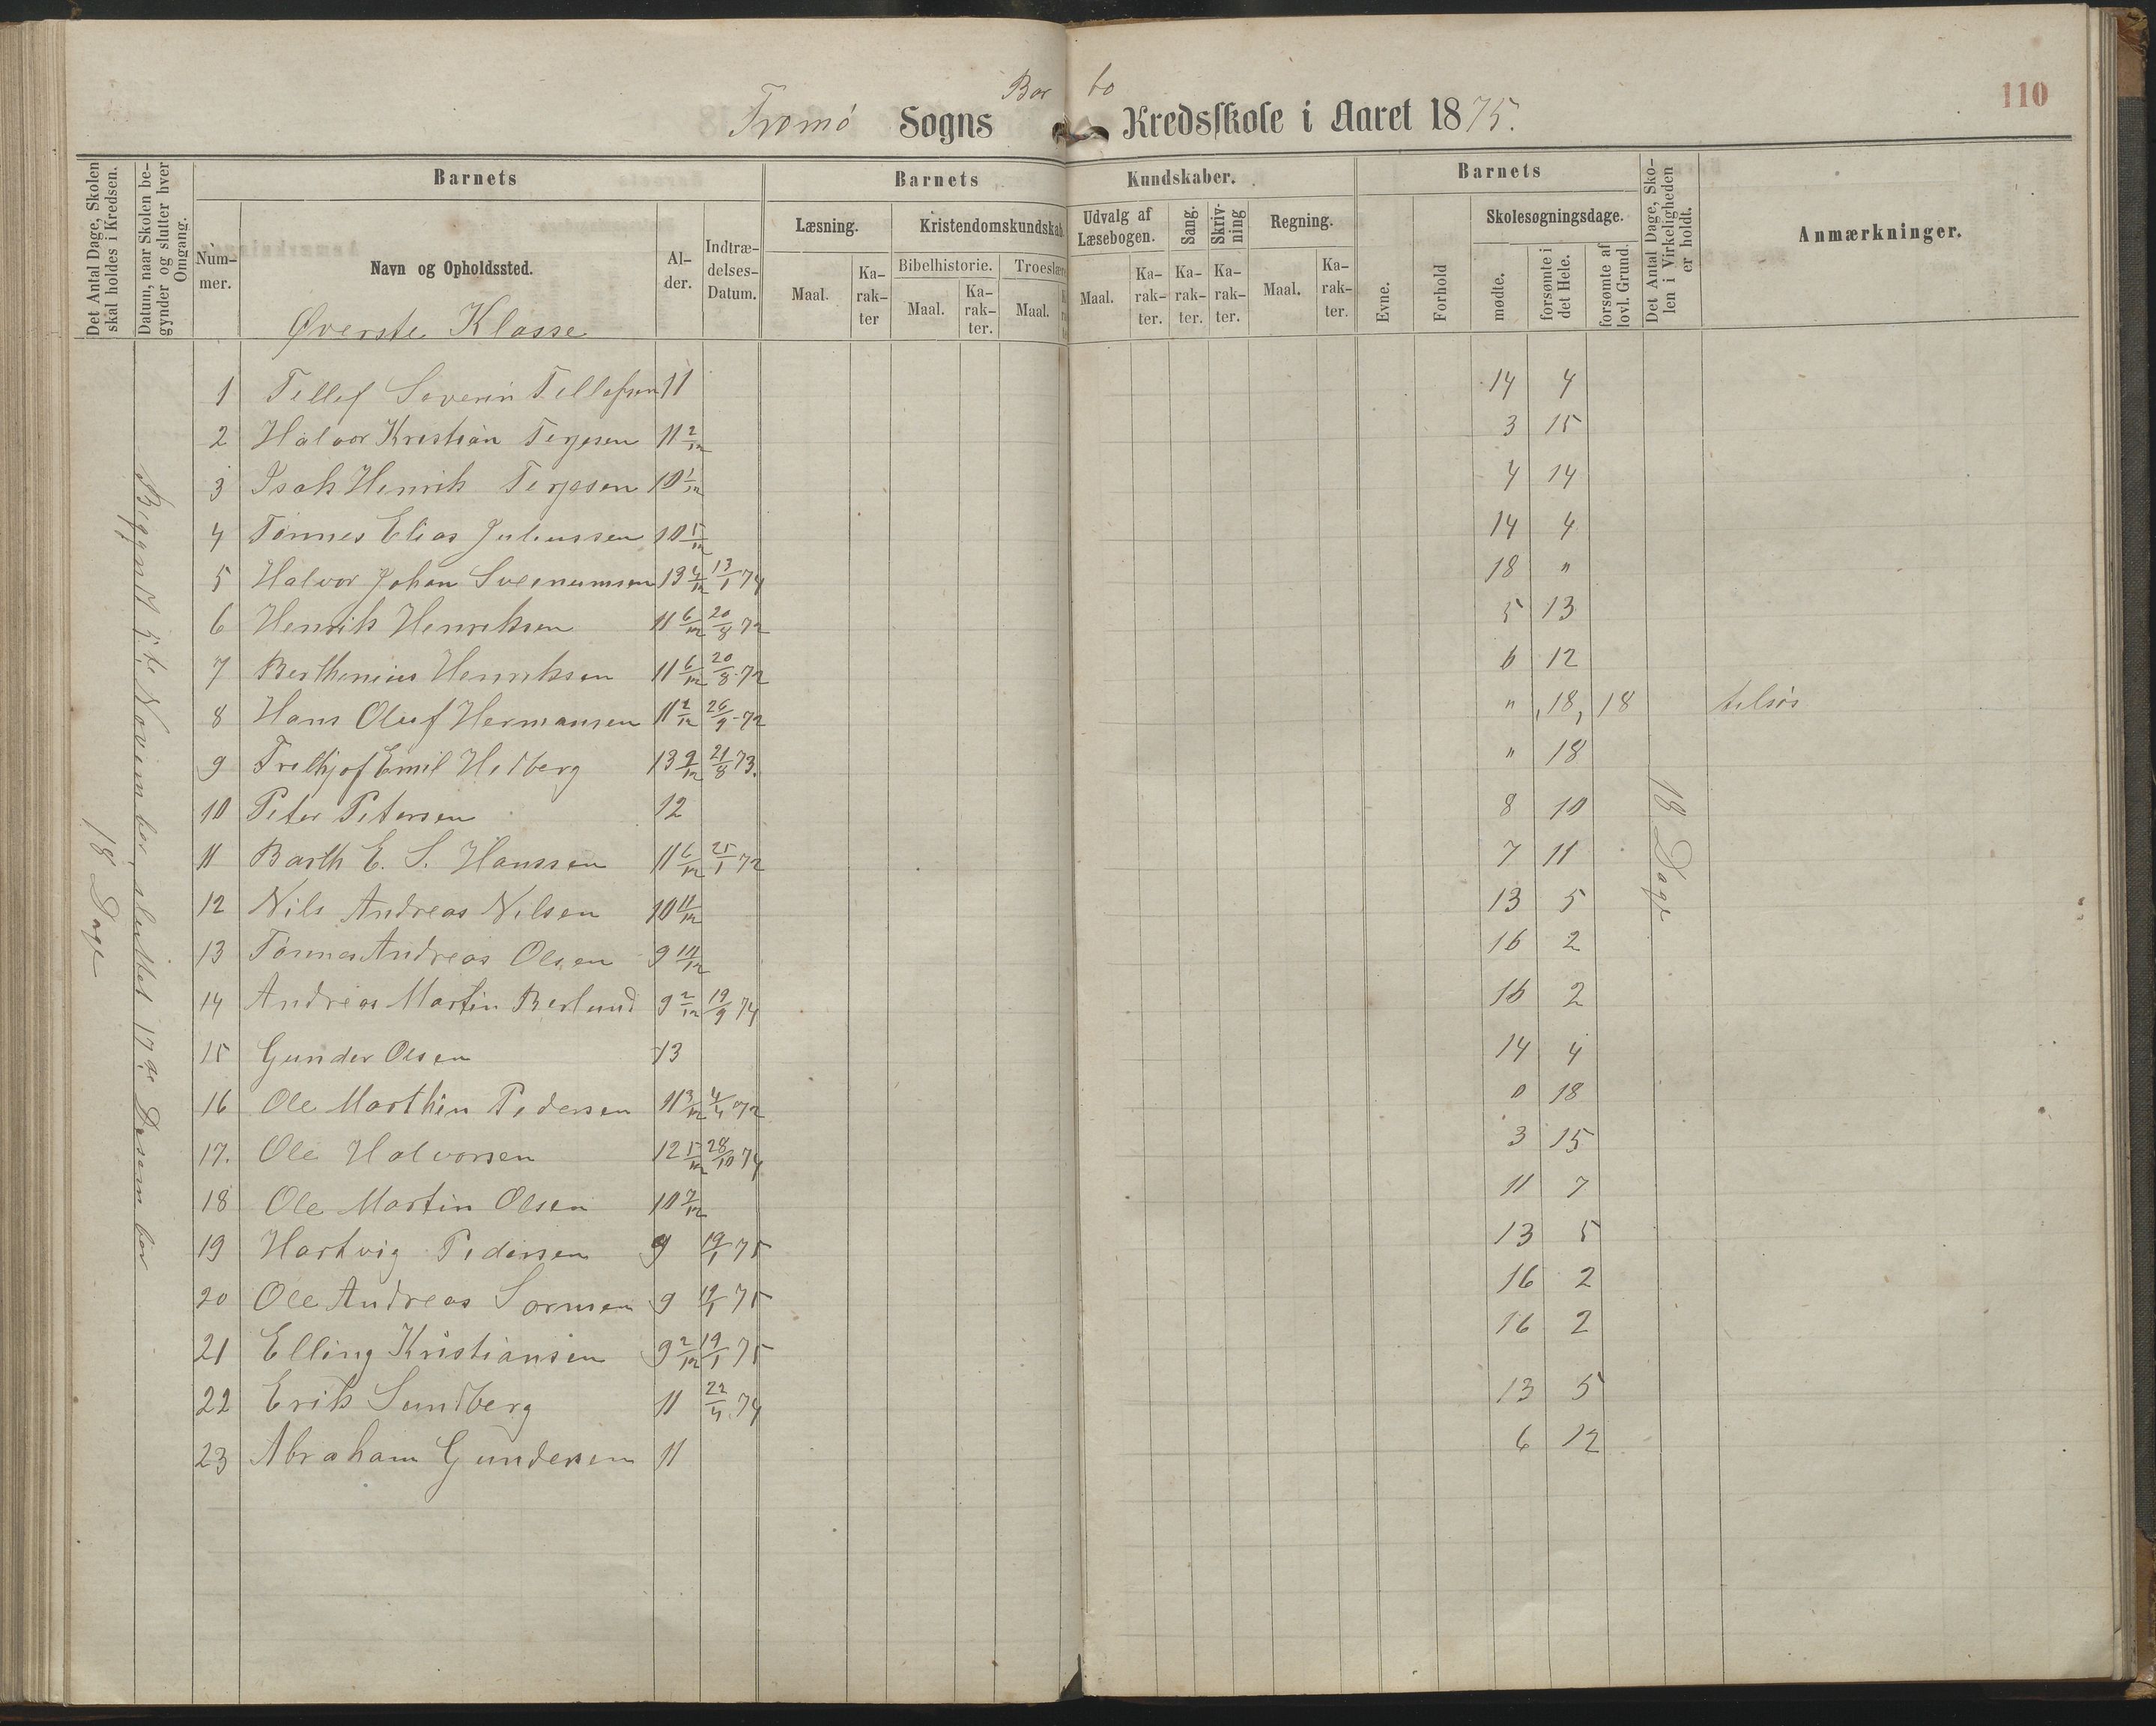 110
Tromø Sogns Barbo Kredsskole i Aaret 1875.
Det Antal Dage, Skolen skal holdes i Kredsen.
Datum, naar Skolen begynder og slutter hver Omgang.
Barnets
Barnets Kundskaber.
Barnets
Det Antal Dage, Skolen i Virkeligheden er holdt.
Anmærkninger.
Nummer.
Navn og Opholdssted.
Alder.
Indtrædelses-Datum.
Læsning. Kristendomskundskab. Udvalg af Læsebogen. Sang. Skrivning Regning.
Bibelhistorie. Troeslære
Maal. Karakter Maal. Karakter. Maal. Maal. Karakter. Karakter. Karakter. Maal. Karakter.
Evne. Forhold Skolesøgningsdage.
mødte. forsømte i det Hele. forsømte af lovl. Grund.
Øverste Klasse
18 Dage
Begyndt 5te November, sluttet 17de Desember
18 Dage
1 Tellef Severin Tellefsen 11 14 4
2 Halvor Kristian Terjesen 11 2/12 3 15
3 Isak Henrik Terjesen 10 1/12 4 14
4 Tønnes Elias Juliussen 10 5/12 14 4
5 Halvor Johan 13 4/12 13/1 74 18 "
6 Henrik Henriksen 11 6/12 20/8 72 5 13
7 Berthinius Henriksen 11 6/12 20/8 72 6 12
8 Hans Oluf Hermansen 11 2/12 26/9 72 " 18 18 tilsøs
9 Frithjof Emil Hedberg 13 9/12 21/8 73. " 18
10 Peter Petersen 12 8 10
11 Barth E. S. Hanssen 11 6/12 25/1 72 7 11
12 Nils Andreas Nilsen 10 11/12 13 5
13 Tønnes Andreas Olsen 9 10/12 16 2
14 Andreas Martin Berlund 9 2/12 19/9 74 16 2
15 Gunder Olsen 13 14 4
16 Ole Marthin Pedersen 11 3/12 4/4 72 0 18
17. Ole Halvorsen 12 5/12 28/10 74 3 15
18 Ole Martin Olsen 10 7/12 11 7
19 Hartvig Pedersen 9 19/1 75 13 5
20 Ole Andreas 9 19/1 75 16 2
21 Elling Kristiansen 9 2/12 19/1 75 16 2
22 Erik Sundberg 11 22/4 74 13 5
23 Abraham Gundersen 11 6 12